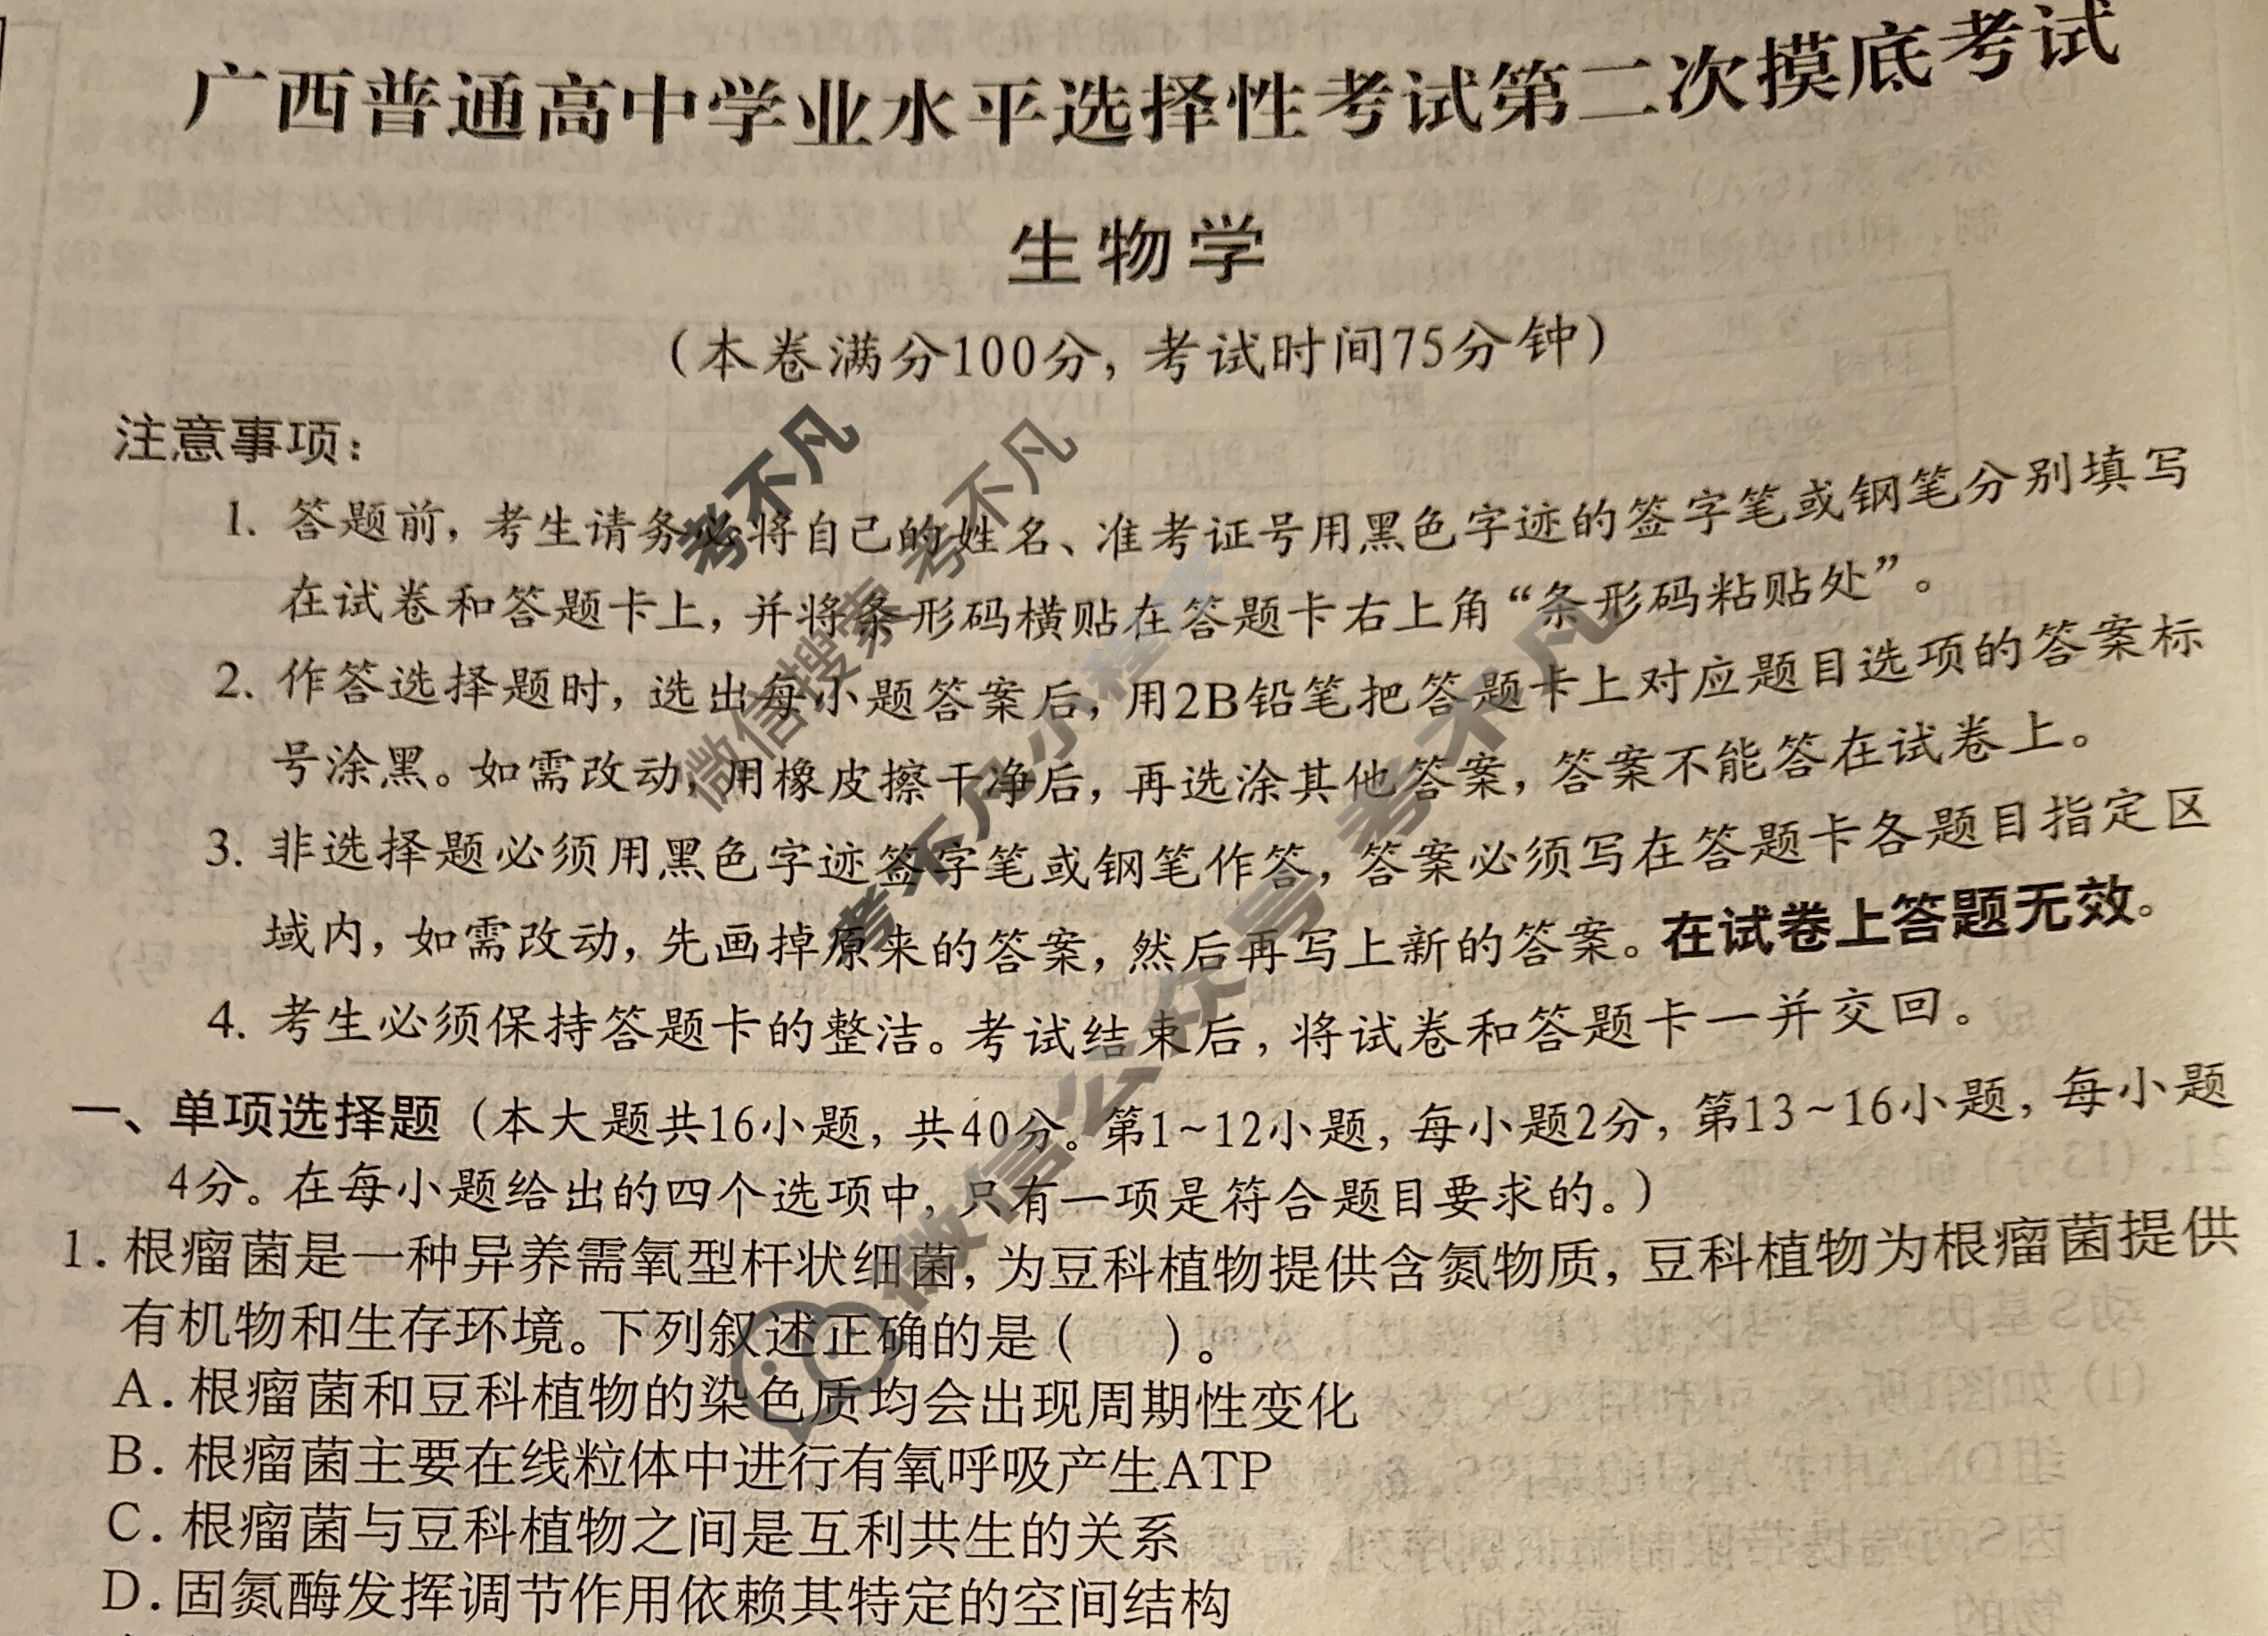 广西普通高中学业水平选择性考试第二次摸底考试
生物学
(本卷满分100分, 考试时间75分钟)
注意事项:
1. 答题前, 考生请务必将自己的姓名、准考证号用黑色字迹的签字笔或钢笔分别填写
在试卷和答题卡上, 并将条形码横贴在答题卡右上角“条形码粘贴处”。
2. 作答选择题时, 选出每小题答案后, 用2B铅笔把答题卡上对应题目选项的答案标
号涂黑。如需改动, 用橡皮擦干净后, 再选涂其他答案, 答案不能答在试卷上。
3. 非选择题必须用黑色字迹签字笔或钢笔作答, 答案必须写在答题卡各题目指定区
域内, 如需改动, 先画掉原来的答案, 然后再写上新的答案。在试卷上答题无效。
4. 考生必须保持答题卡的整洁。考试结束后, 将试卷和答题卡一并交回。
一、单项选择题 (本大题共16小题, 共40分。第1~12小题, 每小题2分, 第13~16小题, 每小题
4分。在每小题给出的四个选项中, 只有一项是符合题目要求的。)
1. 根瘤菌是一种异养需氧型杆状细菌, 为豆科植物提供含氮物质, 豆科植物为根瘤菌提供
有机物和生存环境。下列叙述正确的是 (    )。
A. 根瘤菌和豆科植物的染色质均会出现周期性变化
B. 根瘤菌主要在线粒体中进行有氧呼吸产生ATP
C. 根瘤菌与豆科植物之间是互利共生的关系
D. 固氮酶发挥调节作用依赖其特定的空间结构
考不凡
微信搜索 考不凡
考不凡小程序
微信公众号 考不凡